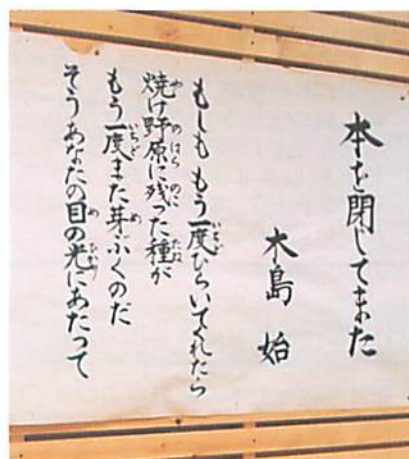 本を閉じてまた
木島 始
もしも もう一度ひらいてくれたら
焼け野原に残った種が
もう一度また芽ぶくのだ
そうあなたの目の光にあたって